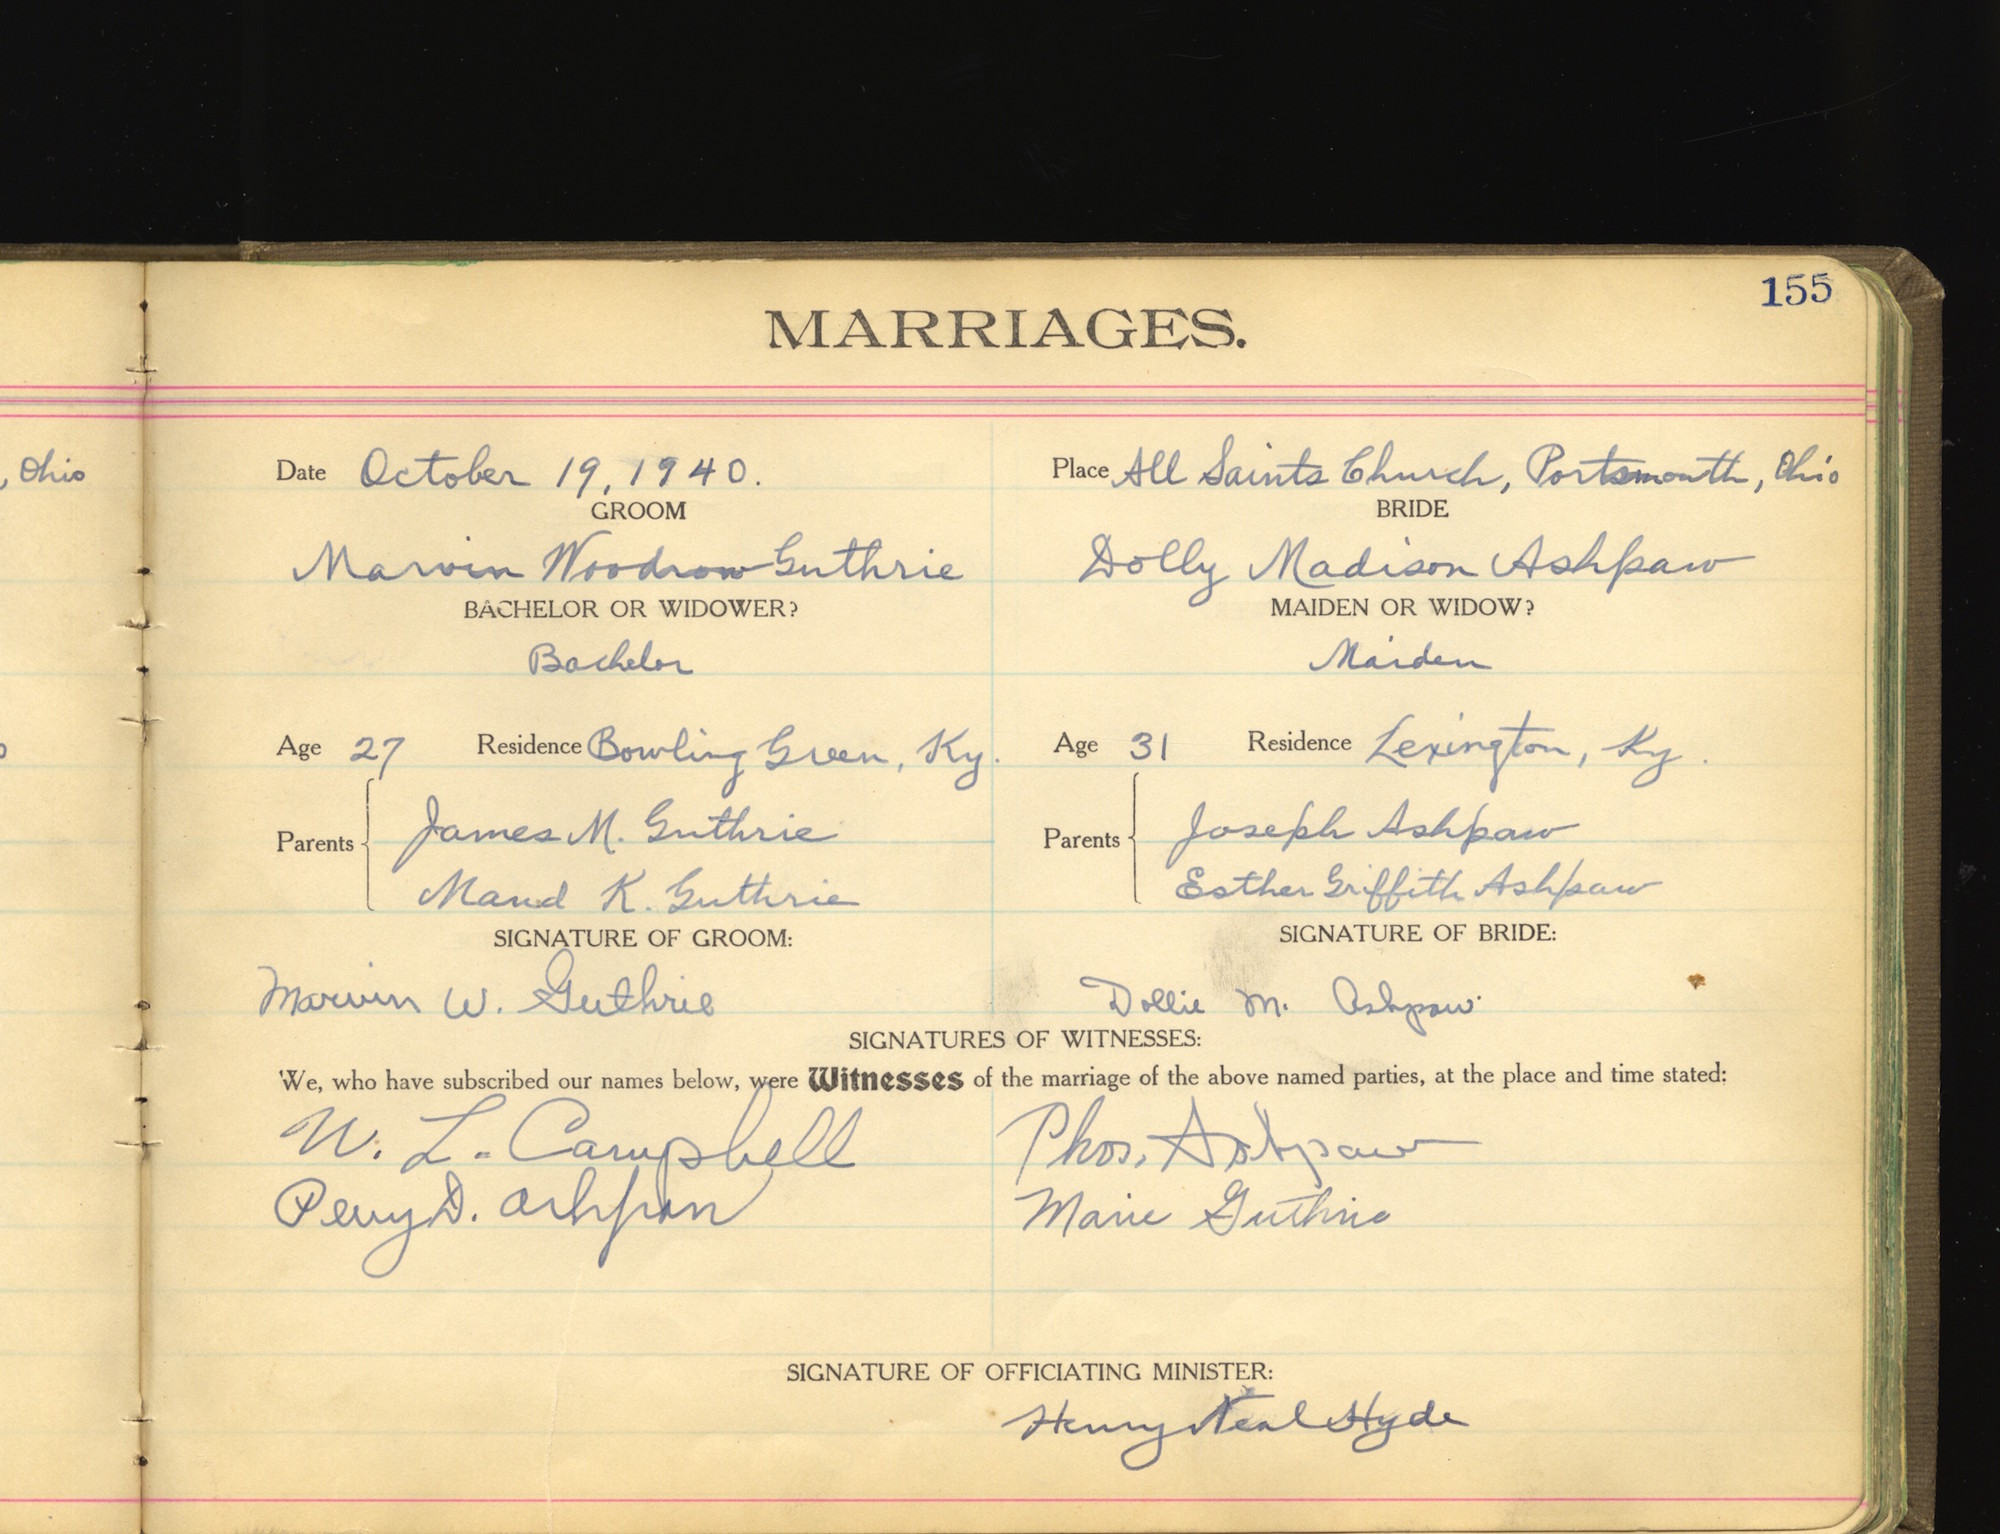 155
MARRIAGES.
, Ohio
Date October 19, 1940.
Place All Saints Church, Portsmouth, Ohio
GROOM
BRIDE
Marvin Woodrow Guthrie
Dolly Madison Ashpaw
BACHELOR OR WIDOWER?
MAIDEN OR WIDOW?
Bachelor
Maiden
Age 27 Residence Bowling Green, Ky.
Age 31 Residence Lexington, Ky.
Parents
James M. Guthrie
Maud K. Guthrie
Parents
Joseph Ashpaw
Esther Griffith Ashpaw
SIGNATURE OF GROOM:
SIGNATURE OF BRIDE:
Marvin W. Guthrie
Dollie M. Ashpaw
SIGNATURES OF WITNESSES:
We, who have subscribed our names below, were Witnesses of the marriage of the above named parties, at the place and time stated:
W. L. Campbell
Ashpaw
Perry D. Ashpaw
Marie Guthrie
SIGNATURE OF OFFICIATING MINISTER:
Henry Neal Hyde